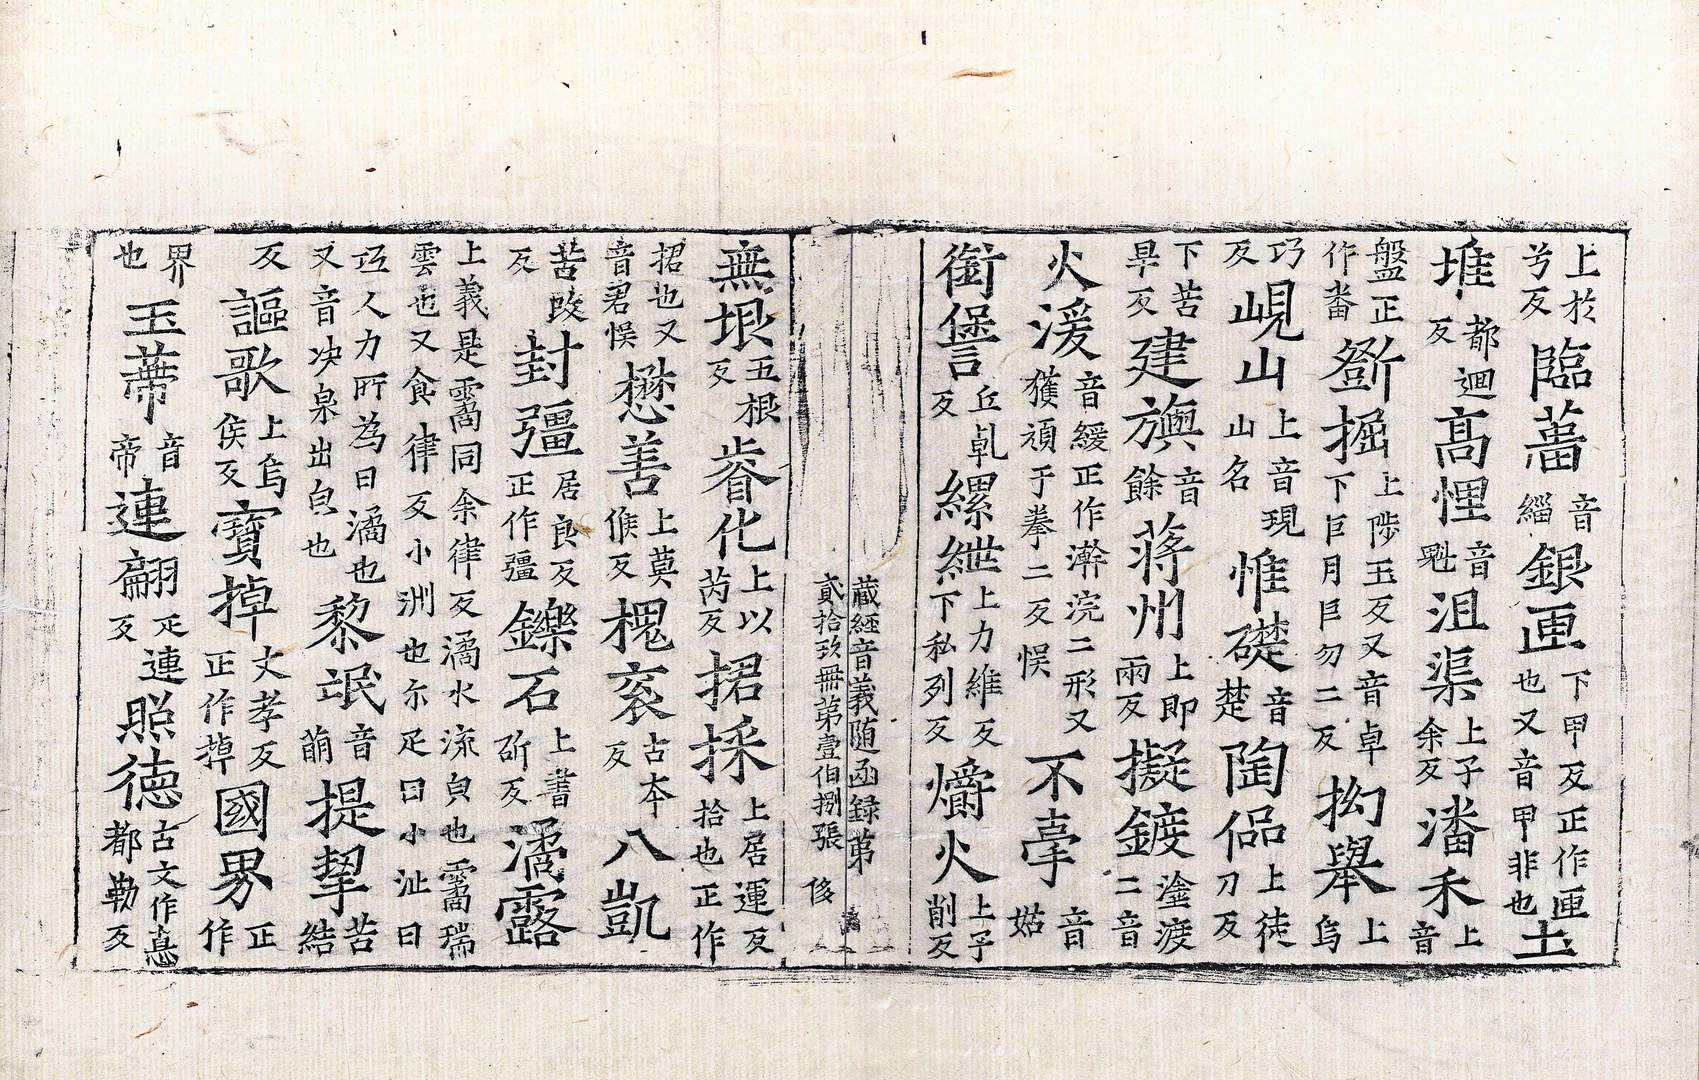 上於兮反臨菑音緇銀匣下甲反正作匣也又音甲非也土
堆都迴反高悝音魁沮渠上子余反潘禾上音
盤正作番劉掘上陟玉反又音卓下巨月巨勿二反拗舉上烏
巧反峴山上音現山名惟礎音楚陶侃上徒刀反
下苦旱反建旟音餘蔣州上即兩反擬鍍二音塗渡
火湲音緩正作澣浣二形又獲頑于拳二反悮不辜音姑
銜諐丘乹反縲紲上力維反下私列反爝火上子削反
藏經音義随函録苐
貳拾玖冊苐壹伯捌張 侈
無垠五根反睿化上以芮反捃採上居運反拾也正作
捃也又音君悮懋善上莫候反槐衮古本反八凱
苦改反封彊居良反正作疆鑠石上書斫反潏露
上義是霱同余律反潏水流皃也霱瑞雲也又食律反小洲也尒疋曰小沚曰
沊人力所為曰潏也又音决泉出皃也黎氓音萌提挈苦結
反謳歌上烏侯反寶掉丈孝反正作棹國界正作
界也玉蔕音帝連翩疋連反照德古文作惪都勒反